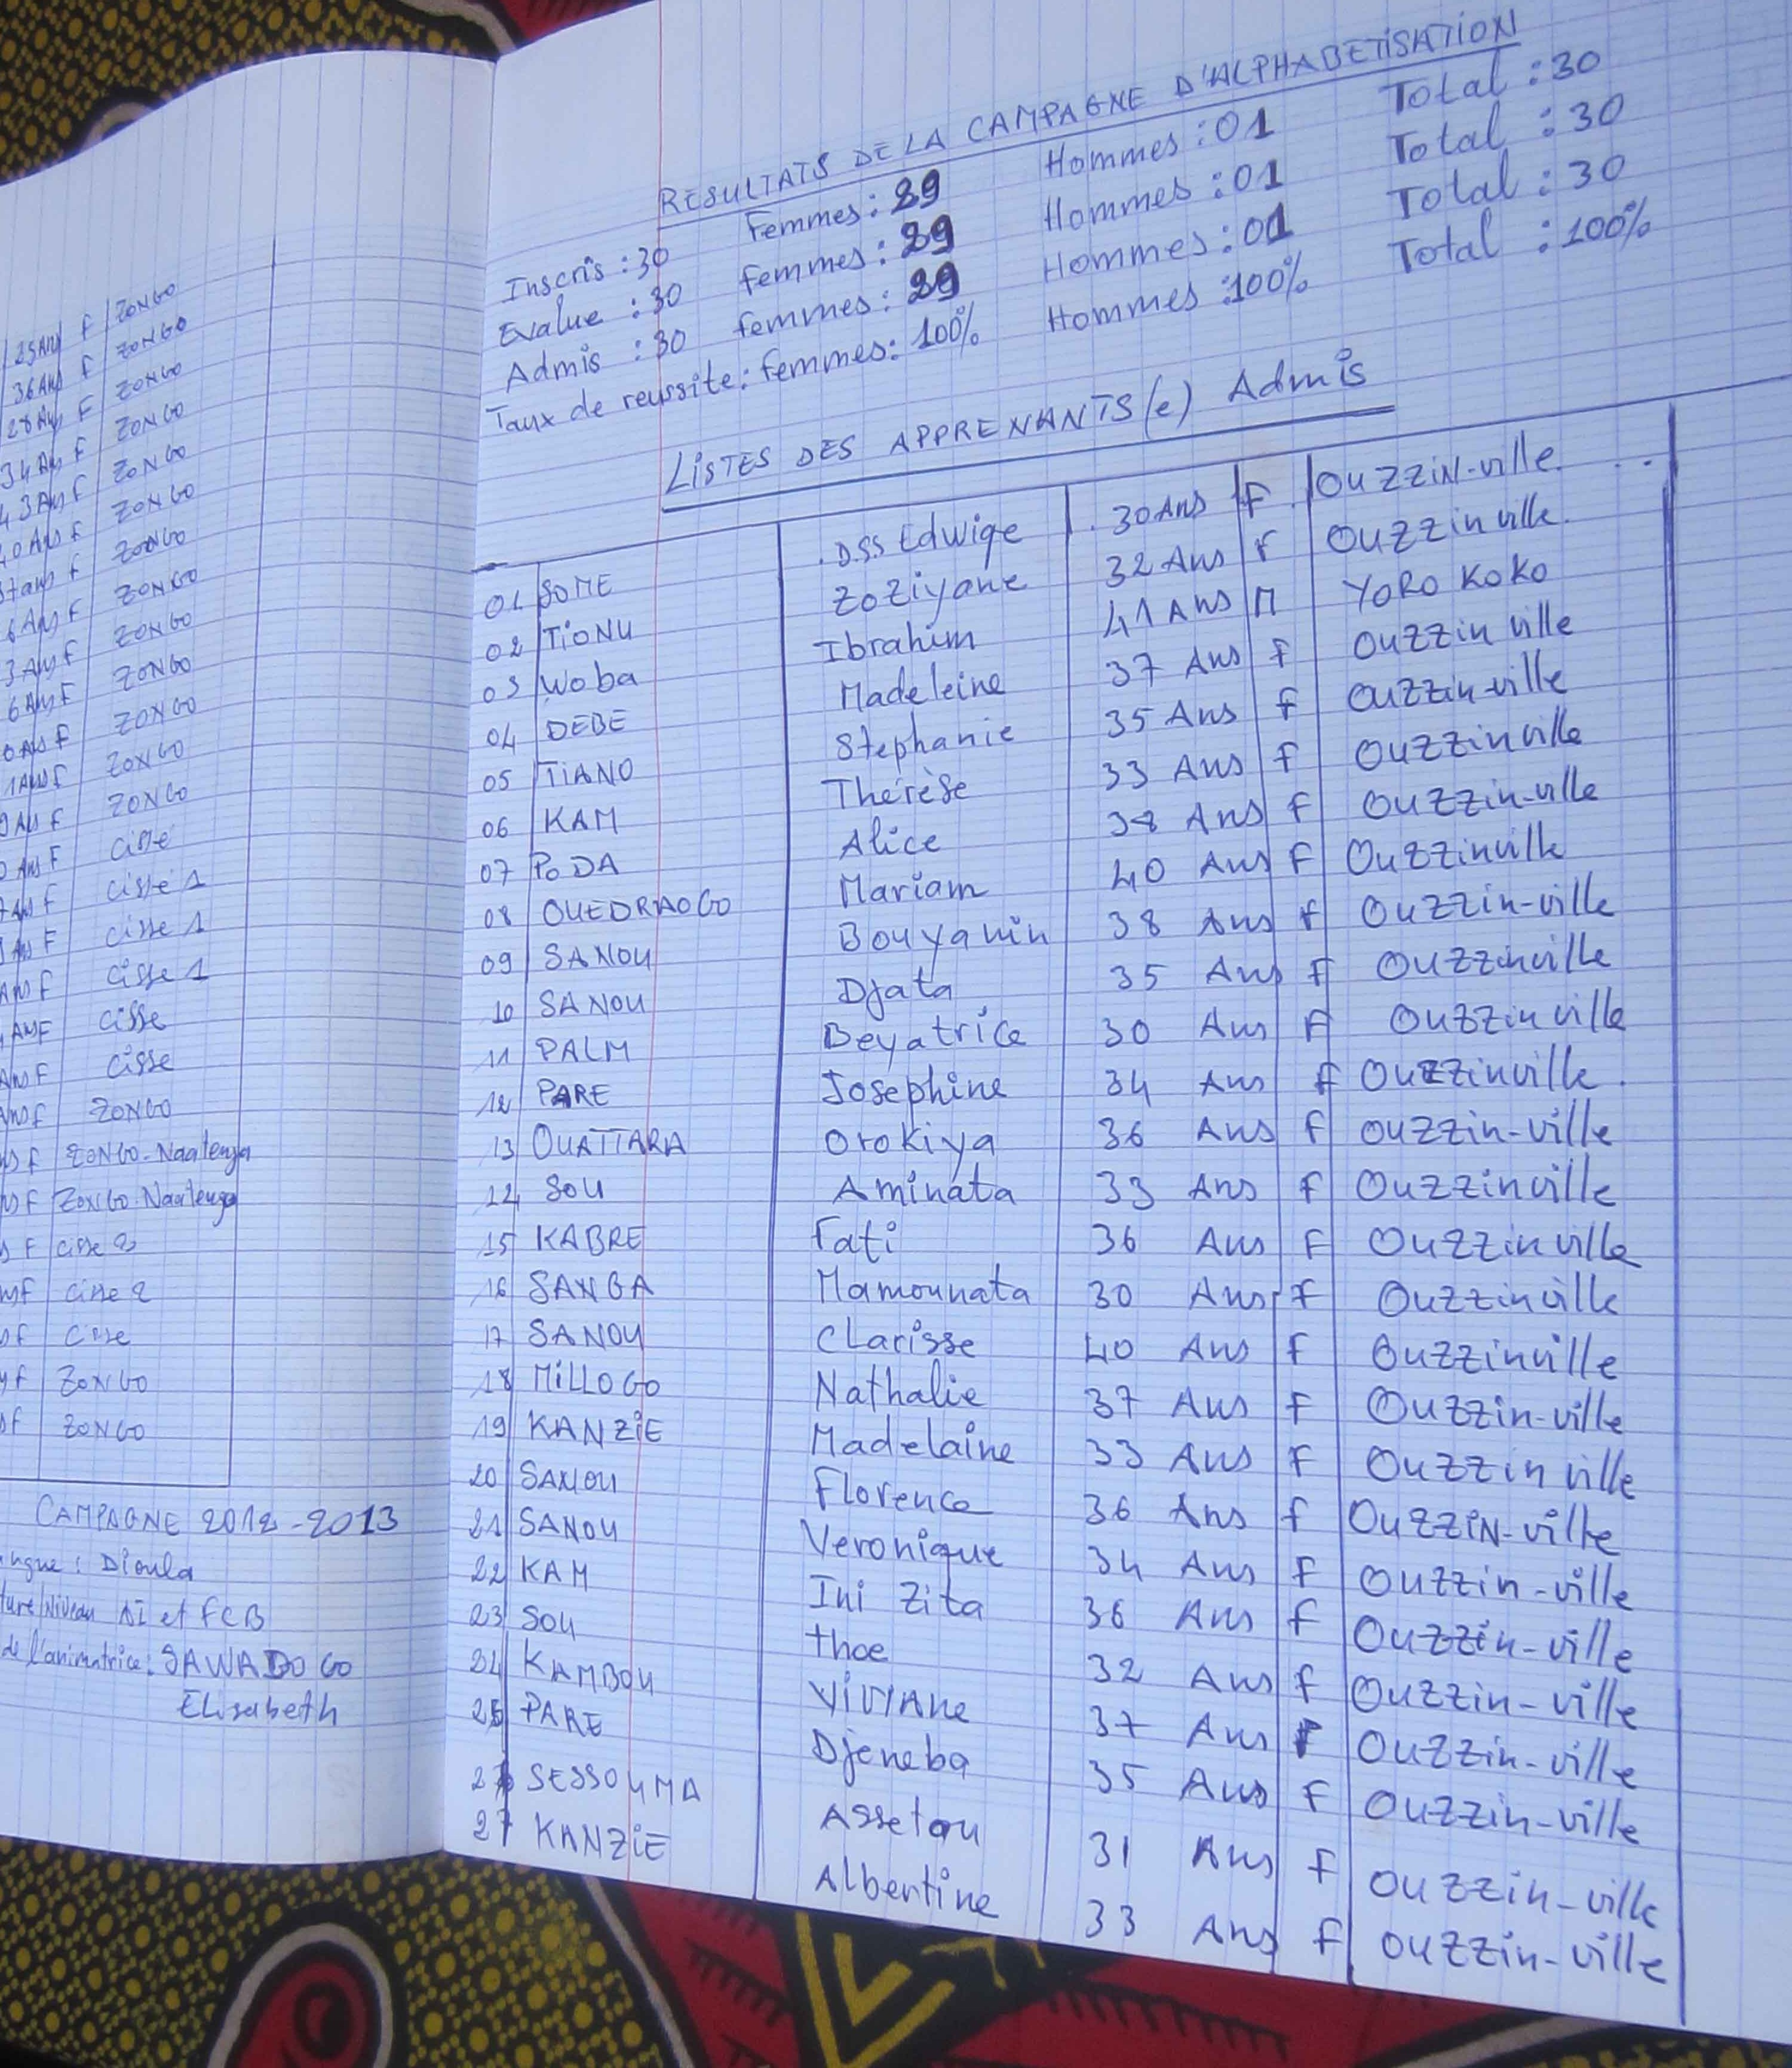 25Ans F ZONGO
36Ans F ZONGO
28Ans F ZONGO
34Ans F ZONGO
43Ans F ZONGO
0Ans F ZONGO
7ans F ZONGO
6Ans F ZONGO
3Ans F ZONGO
6Ans F ZONGO
0Ans F ZONGO
1Ans F ZONGO
Ans F ZONGO
Ans F cisse
Ans F cisse 1
Ans F cisse 1
Ans F cisse 1
Ans F cisse
Ans F cisse
Ans F ZONGO
F ZONGO-Naatenga
F ZONGO-Naatenga
F cisse 2
F cisse 2
F cisse
F ZONGO
F ZONGO
CAMPAGNE 2012-2013
ngue : Dioula
ture/Niveau AI et FCB
de l'animatrice: SAWADOGO
Elisabeth
RESULTATS DE LA CAMPAGNE D'ALPHABETISATION
Inscris : 30 Femmes : 29 Hommes : 01 Total : 30
Evalue : 30 femmes : 29 Hommes : 01 Total : 30
Admis : 30 femmes : 29 Hommes : 01 Total : 30
Taux de reussite : femmes: 100% Hommes : 100% Total : 100%
LISTES DES APPRENANTS(e) Admis
01 SOME DSS Edwige 30 Ans F OUZZIN-ville
02 TIONU ZoZiyane 32 Ans F OUZZin ville
03 Woba Ibrahim 41 Ans M YORO KOKO
04 DEBE Madeleine 37 Ans F OUZZin ville
05 TIANO Stephanie 35 Ans F OUZZin-ville
06 KAM Thérèse 33 Ans F OUZZinville
07 PODA Alice 38 Ans F OUZZin-ville
08 OUEDRAOGO Mariam 40 Ans F OUZZinville
09 SANOU Bouyanin 38 Ans F OUZZin-ville
10 SANOU Djata 35 Ans F OUZZinville
11 PALM Beyatrice 30 Ans F OUZZin ville
12 PARE Josephine 34 Ans F OUZZinville
13 OUATTARA Orokiya 36 Ans F OUZZin-ville
14 SOU Aminata 33 Ans F OUZZinville
15 KABRE Fati 36 Ans F OUZZinville
16 SANGA Mamounata 30 Ans F OUZZinville
17 SANOU Clarisse 40 Ans F OUZZinville
18 MILLOGO Nathalie 37 Ans F OUZZin-ville
19 KANZIE Madelaine 33 Ans F OUZZin ville
20 SANOU Florence 36 Ans F OUZZIN-ville
21 SANOU Veronique 34 Ans F OUZZin-ville
22 KAM Ini Zita 36 Ans F OUZZin-ville
23 SOU thoe 32 Ans F OUZZin-ville
24 KAMBOU ViViAne 37 Ans F OUZZin-ville
25 PARE Djeneba 35 Ans F OUZZin-ville
26 SESSOUMA Assetou 31 Ans F OUZZin-ville
27 KANZIE Albertine 33 Ans F OUZZin-ville